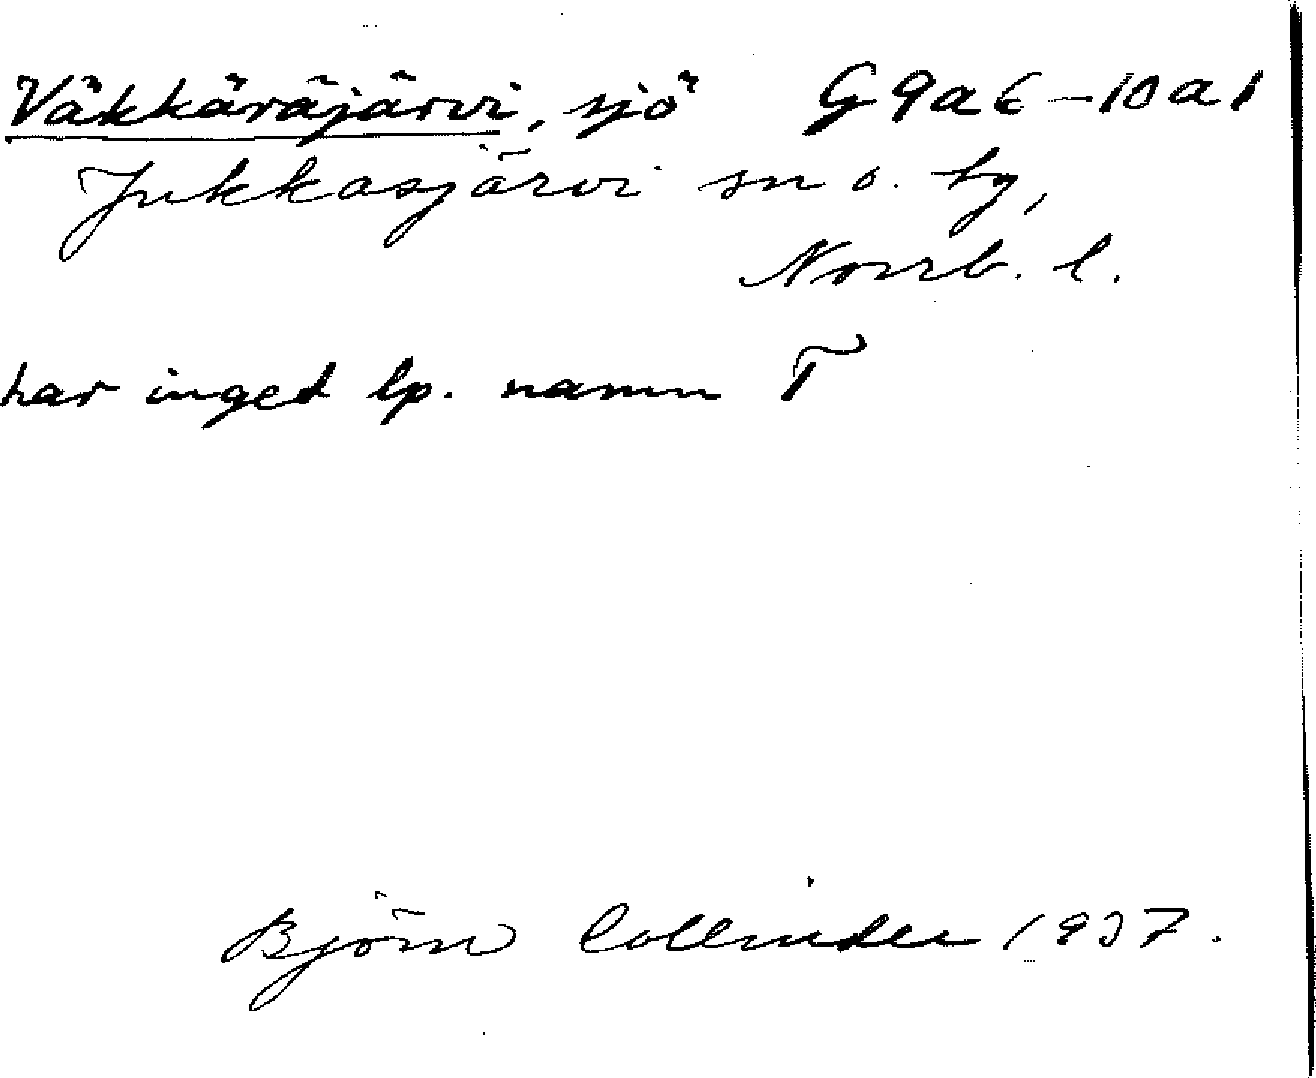 Väkkäräjärvi, sjö G 9a6–10a1
Jukkasjärvi sn o. by,
Norrb. l.
har inget lp. namn T
Björn Collinder 1937.